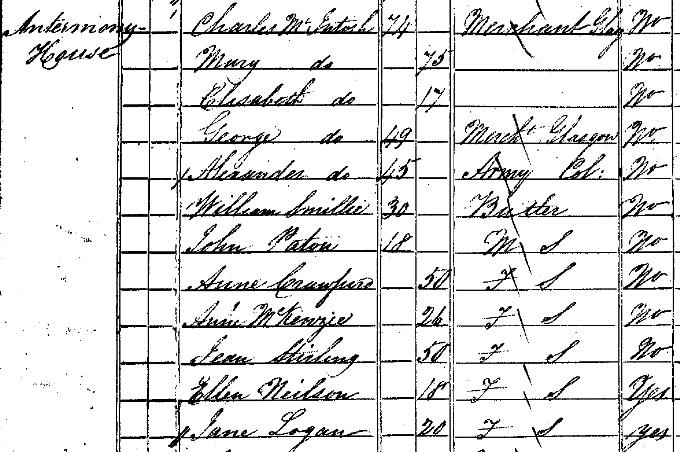 Antermony- Charles McIntosh 74 Merchant Glag No
House Mary do 75 No
Elisabeth do 17 No
George do 49 Mercht Glasgow No
Alexander do 45 Army Col: No
William Smillie 30 Butler No
John Paton 18 M S No
Anne Craufurd 50 F S No
Anne McKenzie 26 F S No
Jean Stirling 50 F S No
Ellen Neilson 18 F S Yes
Jane Logan 20 F S yes